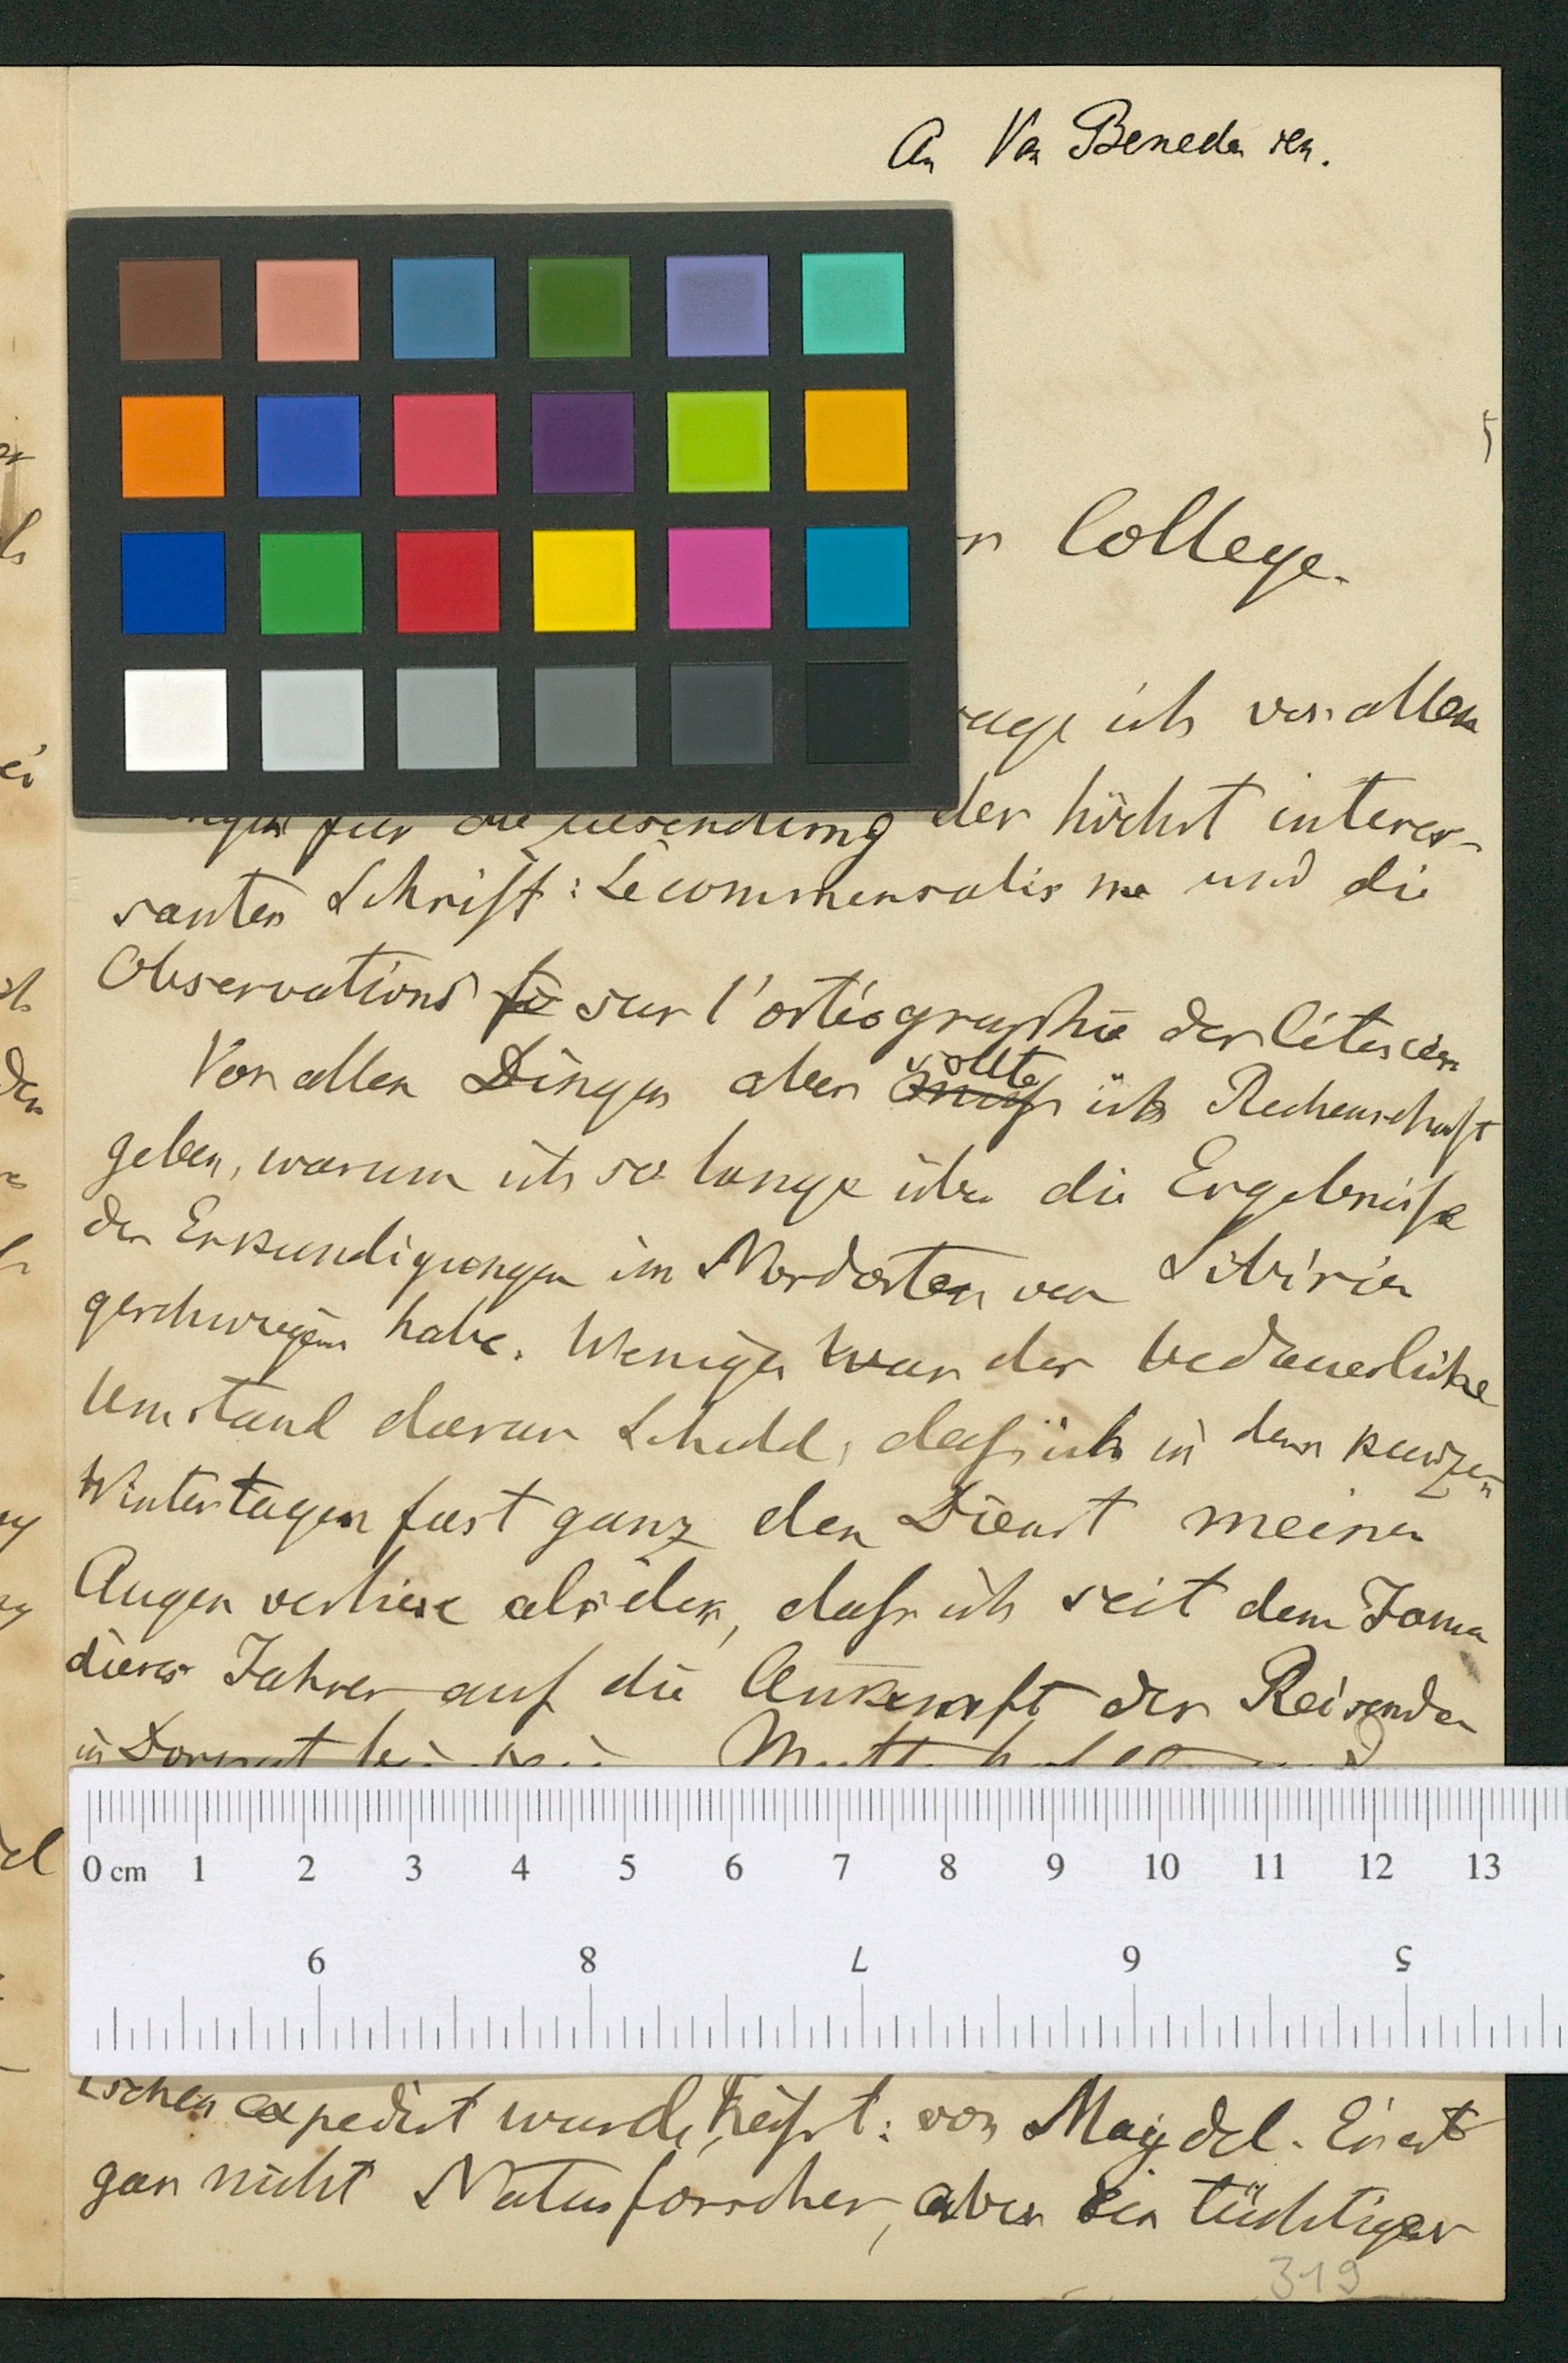 An Van Beneden sen.
College.
ich vor allen
für die Zusendung der höchst interes-
santen Schrift: Le commensalisme und die
Observations sur l'ostéographie der Cétacéen
Vor allen Dingen aber sollte ich Rechenschaft
geben, warum ich so lange über die Ergebnisse
der Erkundigungen im Nordosten von Sibirien
geschwiegen habe. Weniger war der bedauerliche
Umstand daran Schuld, dass ich in den kurzen
Wintertagen fast ganz den Dienst meiner
Augen verliere als der, dass ich seit dem Januar
dieses Jahres auf die Ankunft der Reisenden
in Dorpat
expedirt wurde, heisst: von Maydel. Er ist
gar nicht Naturforscher, aber ein tüchtiger
319
0 cm 1 2 3 4 5 6 7 8 9 10 11 12 13
9 8 7 6 5